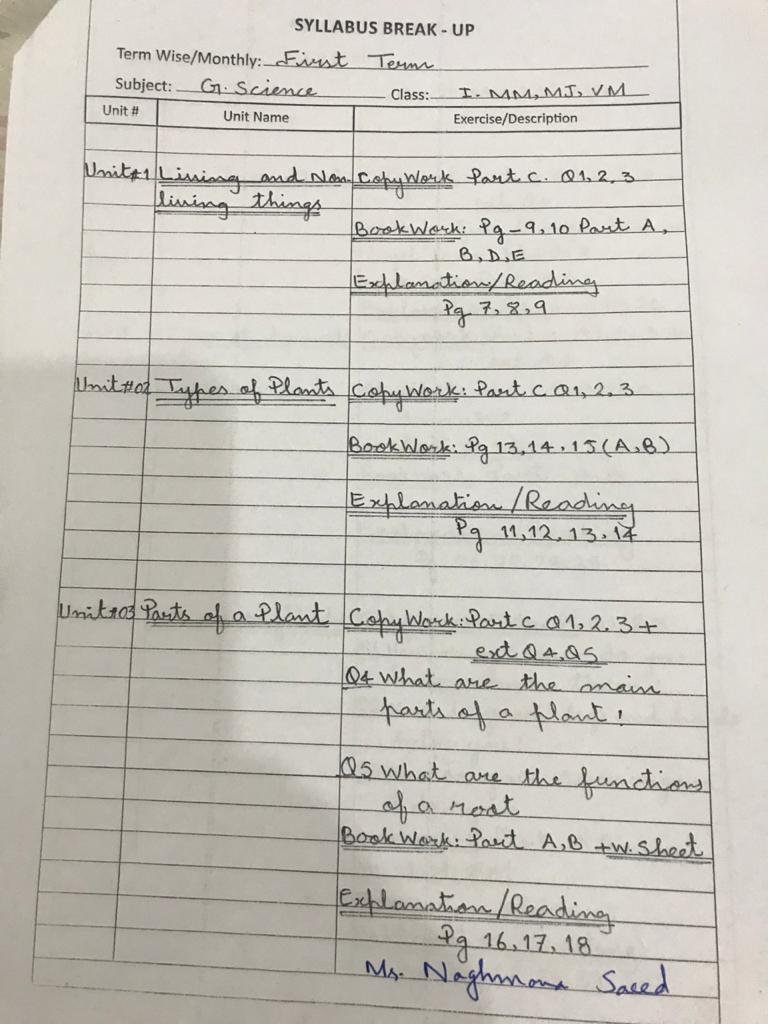 SYLLABUS BREAK - UP
Term Wise/Monthly: First Term
Subject: G. Science Class: I. MM, MJ, VM
Unit # Unit Name Exercise/Description
Unit#1 Living and Non CopyWork Part C. Q1, 2, 3
living things
BookWork: Pg-9, 10 Part A,
B, D, E
Explanation/Reading
Pg 7, 8, 9
Unit#02 Types of Plants CopyWork: Part C Q1, 2, 3
BookWork: Pg 13, 14, 15 (A, B)
Explanation/Reading
Pg 11, 12, 13, 14
Unit#03 Parts of a Plant CopyWork: Part C Q1, 2. 3 +
ext Q4, Q5
Q4 What are the main
parts of a plant?
Q5 What are the functions
of a root
BookWork: Part A, B + W. Sheet
Explanation/Reading
Pg 16, 17, 18
Ms. Saeed